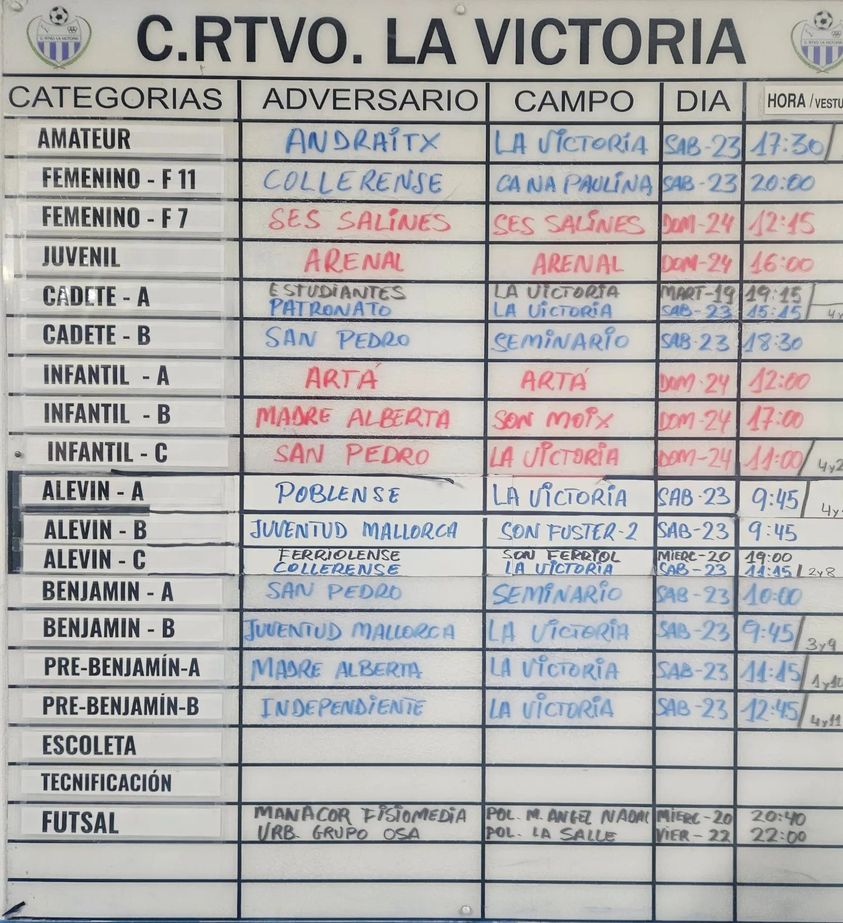 C.RTVO. LA VICTORIA
CATEGORIAS ADVERSARIO CAMPO DIA HORA /VESTU
AMATEUR ANDRAITX LA VICTORIA SAB-23 17:30/
FEMENINO - F 11 COLLERENSE CA NA PAULINA SAB-23 20:00
FEMENINO - F 7 SES SALINES SES SALINES DOM-24 12:15
JUVENIL ARENAL ARENAL DOM-24 16:00
CADETE - A ESTUDIANTES LA VICTORIA MART-19 19:15
PATRONATO LA VICTORIA SAB-23 15:15 / 4y
CADETE - B SAN PEDRO SEMINARIO SAB-23 18:30
INFANTIL - A ARTÁ ARTÁ DOM-24 12:00
INFANTIL - B MADRE ALBERTA SON MOIX DOM-24 17:00
INFANTIL - C SAN PEDRO LA VICTORIA DOM-24 11:00/ 4y2
ALEVIN - A POBLENSE LA VICTORIA SAB-23 9:45/ 4y
ALEVIN - B JUVENTUD MALLORCA SON FUSTER-2 SAB-23 9:45
ALEVIN - C FERRIOLENSE SON FERRIOL MIERC-20 19:00
COLLERENSE LA VICTORIA SAB-23 11:15/ 2y8
BENJAMIN - A SAN PEDRO SEMINARIO SAB-23 10:00
BENJAMIN - B JUVENTUD MALLORCA LA VICTORIA SAB-23 9:45/ 3y9
PRE-BENJAMÍN-A MADRE ALBERTA LA VICTORIA SAB-23 11:15/ 1y10
PRE-BENJAMÍN-B INDEPENDIENTE LA VICTORIA SAB-23 12:45/ 4y11
ESCOLETA
TECNIFICACIÓN
FUTSAL MANACOR FISIOMEDIA POL. M. ANGEL NADAL MIERC-20 20:40
URB. GRUPO OSA POL. LA SALLE VIER-22 22:00